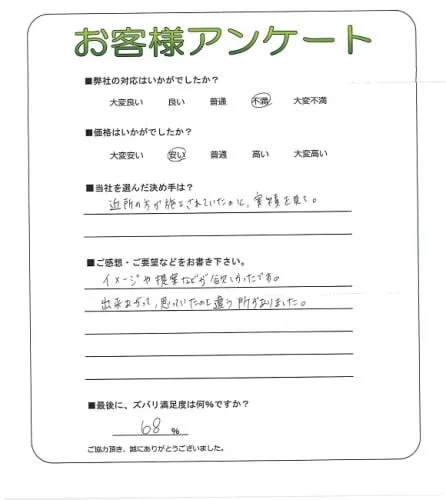 お客様アンケート
■弊社の対応はいかがでしたか？
大変良い　良い　普通　不満　大変不満
■価格はいかがでしたか？
大変安い　安い　普通　高い　大変高い
■当社を選んだ決め手は？
近所の方が施工されていたのと、実績を見て。
■ご感想・ご要望などをお書き下さい。
イメージや提案などが欲しかったです。
出来あがって、思っていたのと違う所がありました。
■最後に、ズバリ満足度は何％ですか？
68 %
ご協力頂き、誠にありがとうございました。